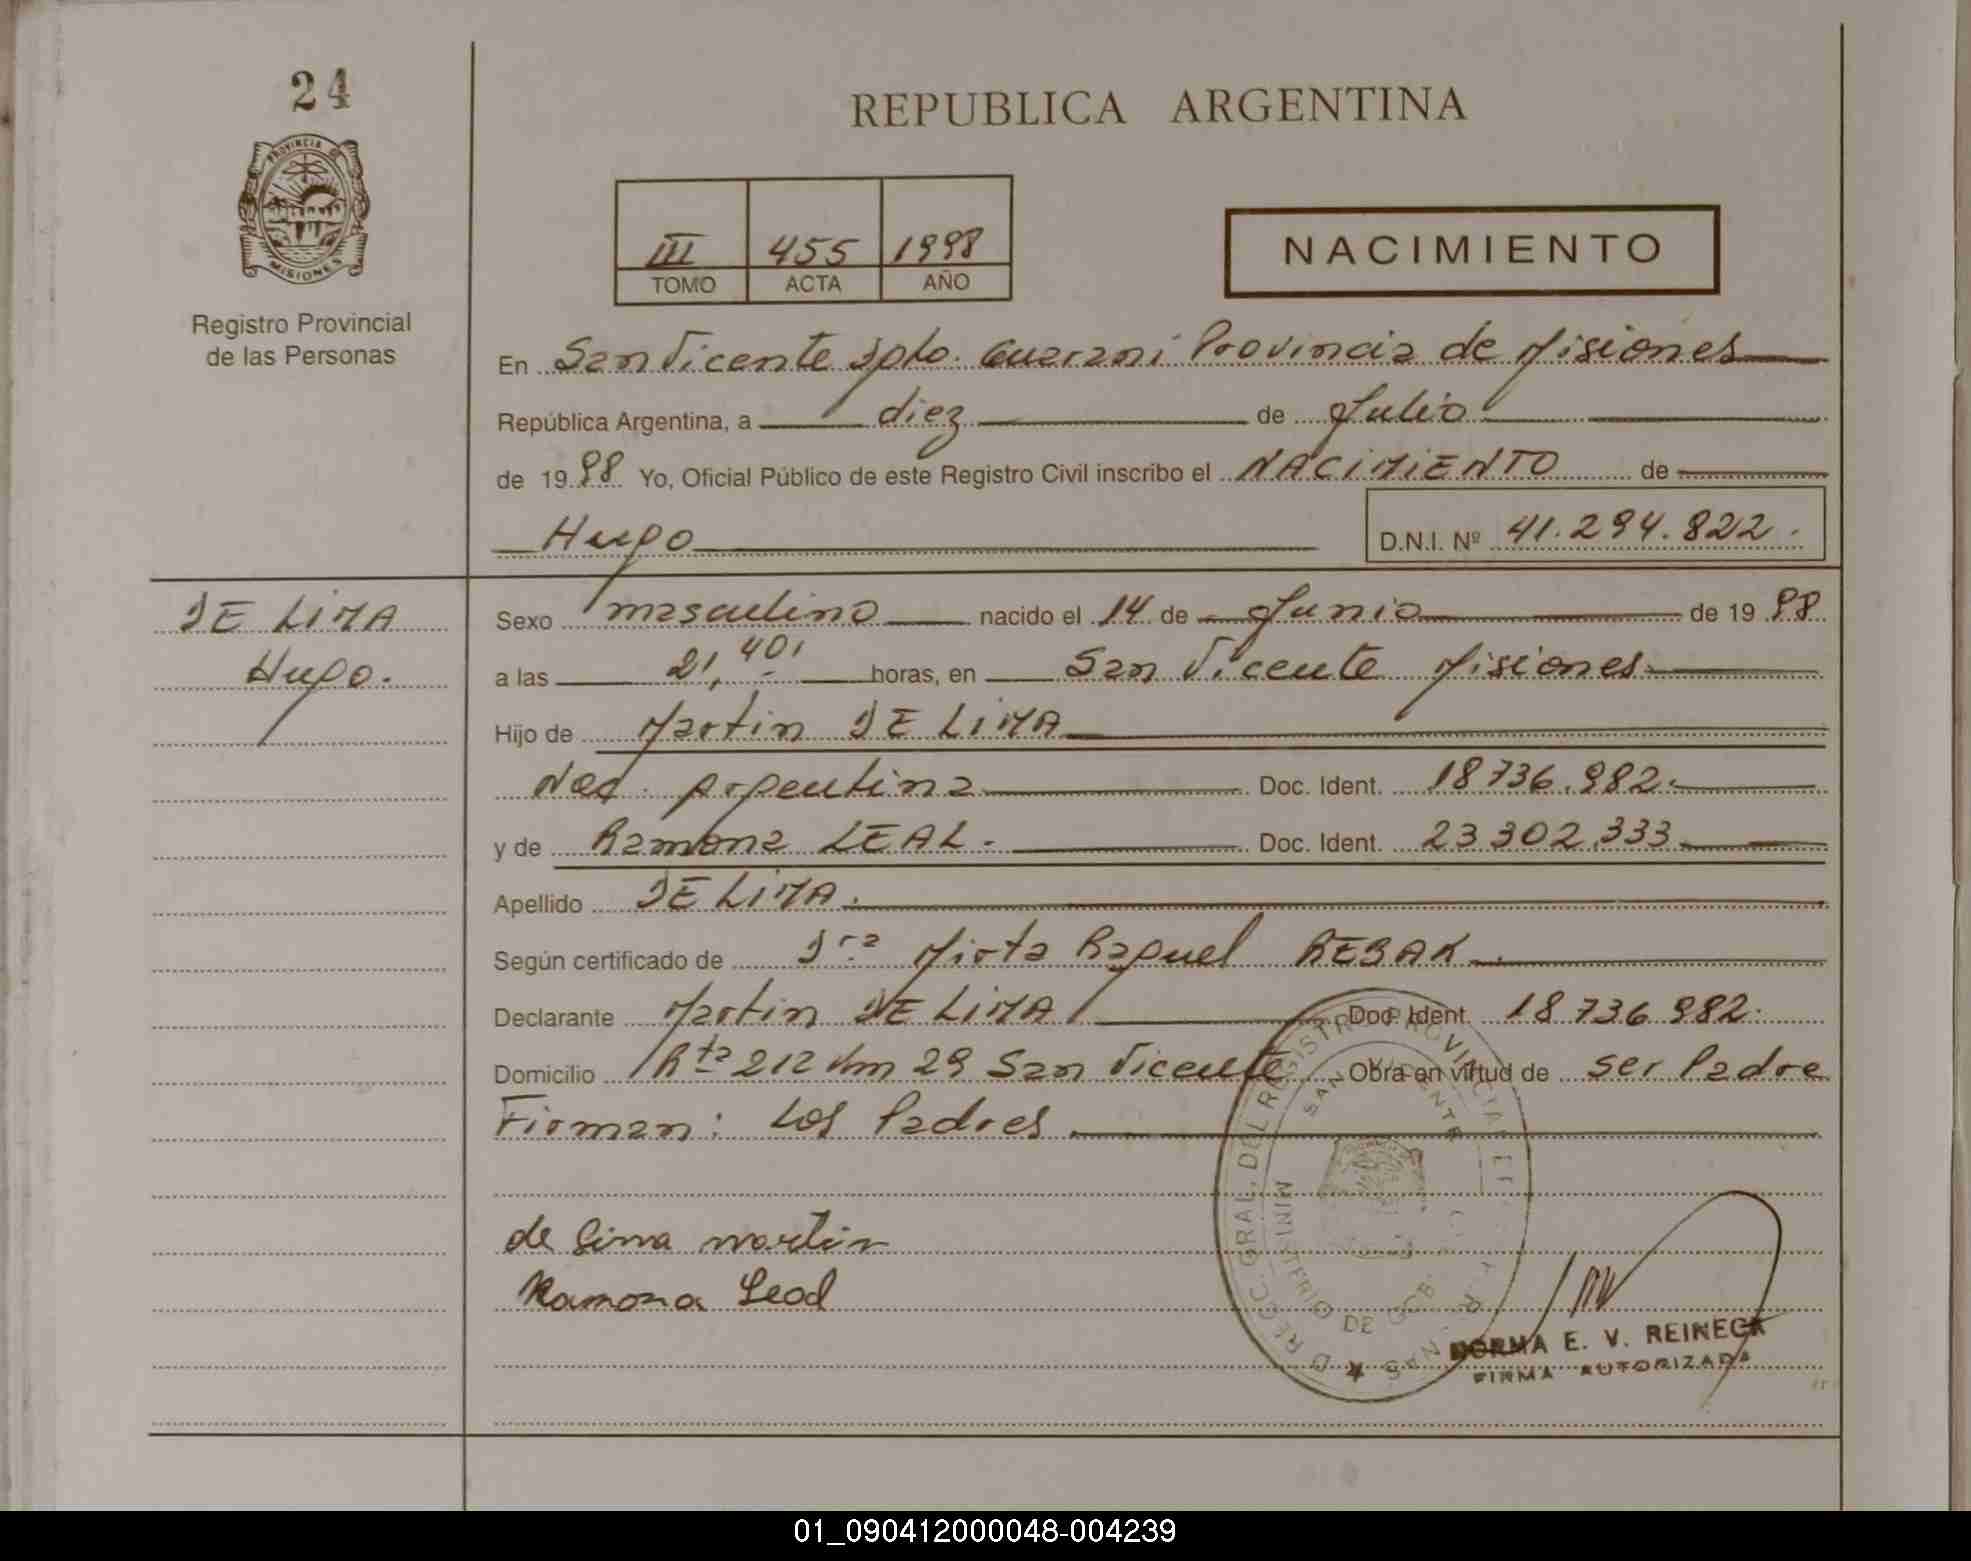 24
REPUBLICA ARGENTINA
PROVINCIA DE
MISIONES
Registro Provincial
de las Personas
III 455 1998
TOMO ACTA AÑO
NACIMIENTO
En San Vicente Dpto. Guaraní Provincia de Misiones
República Argentina, a diez de Julio
de 1998 Yo, Oficial Público de este Registro Civil inscribo el NACIMIENTO de
Hugo D.N.I. Nº 41.294.822.
DE LIMA
Hugo.
Sexo masculino nacido el 14 de Junio de 1998
a las 21,40' horas, en San Vicente Misiones
Hijo de Martin DE LIMA
Nac. Argentina Doc. Ident. 18736.982.
y de Ramona LEAL. Doc. Ident. 23302.333
Apellido DE LIMA.
Según certificado de Dra Mirta Raquel REBAK
Declarante Martin DE LIMA Doc. Ident. 18736982.
Domicilio Rta 212 Km 29 San Vicente Obra en virtud de ser Padre
Firman: Los Padres
de Lima martin
Ramona Leal
D RECC. GRAL. DEL REGISTRO PROVINCIAL
SAN VICENTE
MINISTERIO DE GOB.
NORMA E. V. REINECK
FIRMA AUTORIZADA
01_090412000048-004239